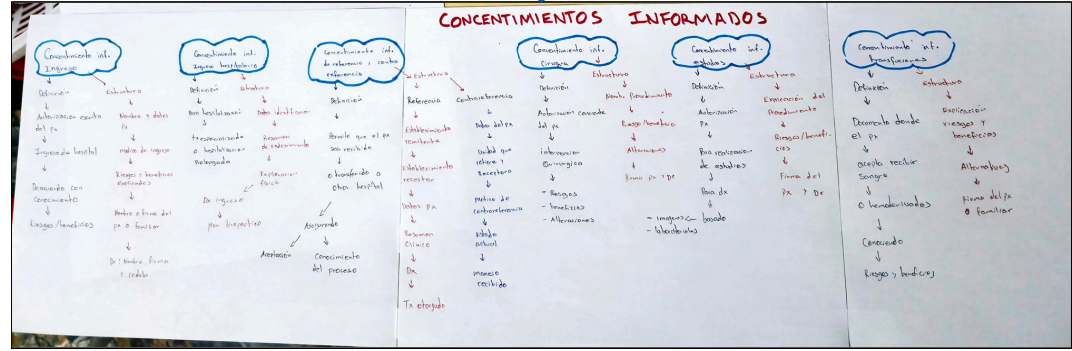 CONCENTIMIENTOS INFORMADOS
Concentimiento inf.
Ingreso
Definición
Autorización escrita
del px
Ingreso de hospital
De acuerdo con
Conocimiento
Riesgos/beneficios
Estructura
Nombre y datos
Px
Motivo de ingreso
Riesgos y beneficios
Nombre o firma del
px o familiar
Dr: Nombre, firma
y cedula
Concentimiento inf.
Ingreso hospitalario
Definición
Dar hospitalización
o hospitalización
Prolongada
Estructura
Datos identificación
Resumen
de padecimiento
Exploración
física
Dx ingreso
plan terapeutico
Concentimiento inf.
de referencia y contra
referencia
Definición
Permite que el px
sea recibido
o transferido a
otros hospital
Asegurando
Aceptación
Conocimiento
del proceso
Estructura
Referencia
Establecimiento
remitente
Establecimiento
receptor
Datos px
Resumen
Clínico
Dx
Tx otorgado
Contrareferencia
Datos del px
Unidad que
refiere y
Receptora
Motivo de
contrareferencia
Estado
actual
manejo
recibido
Concentimiento inf.
Cirugia
Definición
Autorización consiente
del px
intervención
Quirurgica
- Riesgos
- beneficios
- Alteraciones
Estructura
Nomb. Procedimiento
Riesgo/beneficio
Alternativas
Firma px y Dr
Concentimiento inf.
estudios
Definición
Autorización
Px
Para realización
de estudios
Para dx
basado
- imagenes
- laboratoriales
Estructura
Explicación del
Procedimiento
Riesgos/benefi-
cios
Firma del
Px y Dr
Concentimiento inf.
transfuciones
Definición
Documento donde
el px
acepta recibir
Sangre
o hemoderivados
Conociendo
Riesgos y beneficios
Estructura
Explicación
riesgos y
beneficios
Alternativas
Firma del px
o familiar